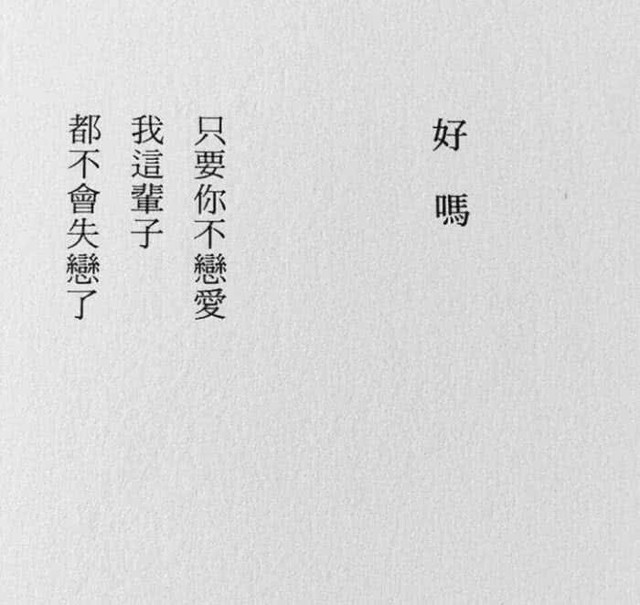 好嗎
只要你不戀愛
我這輩子
都不會失戀了